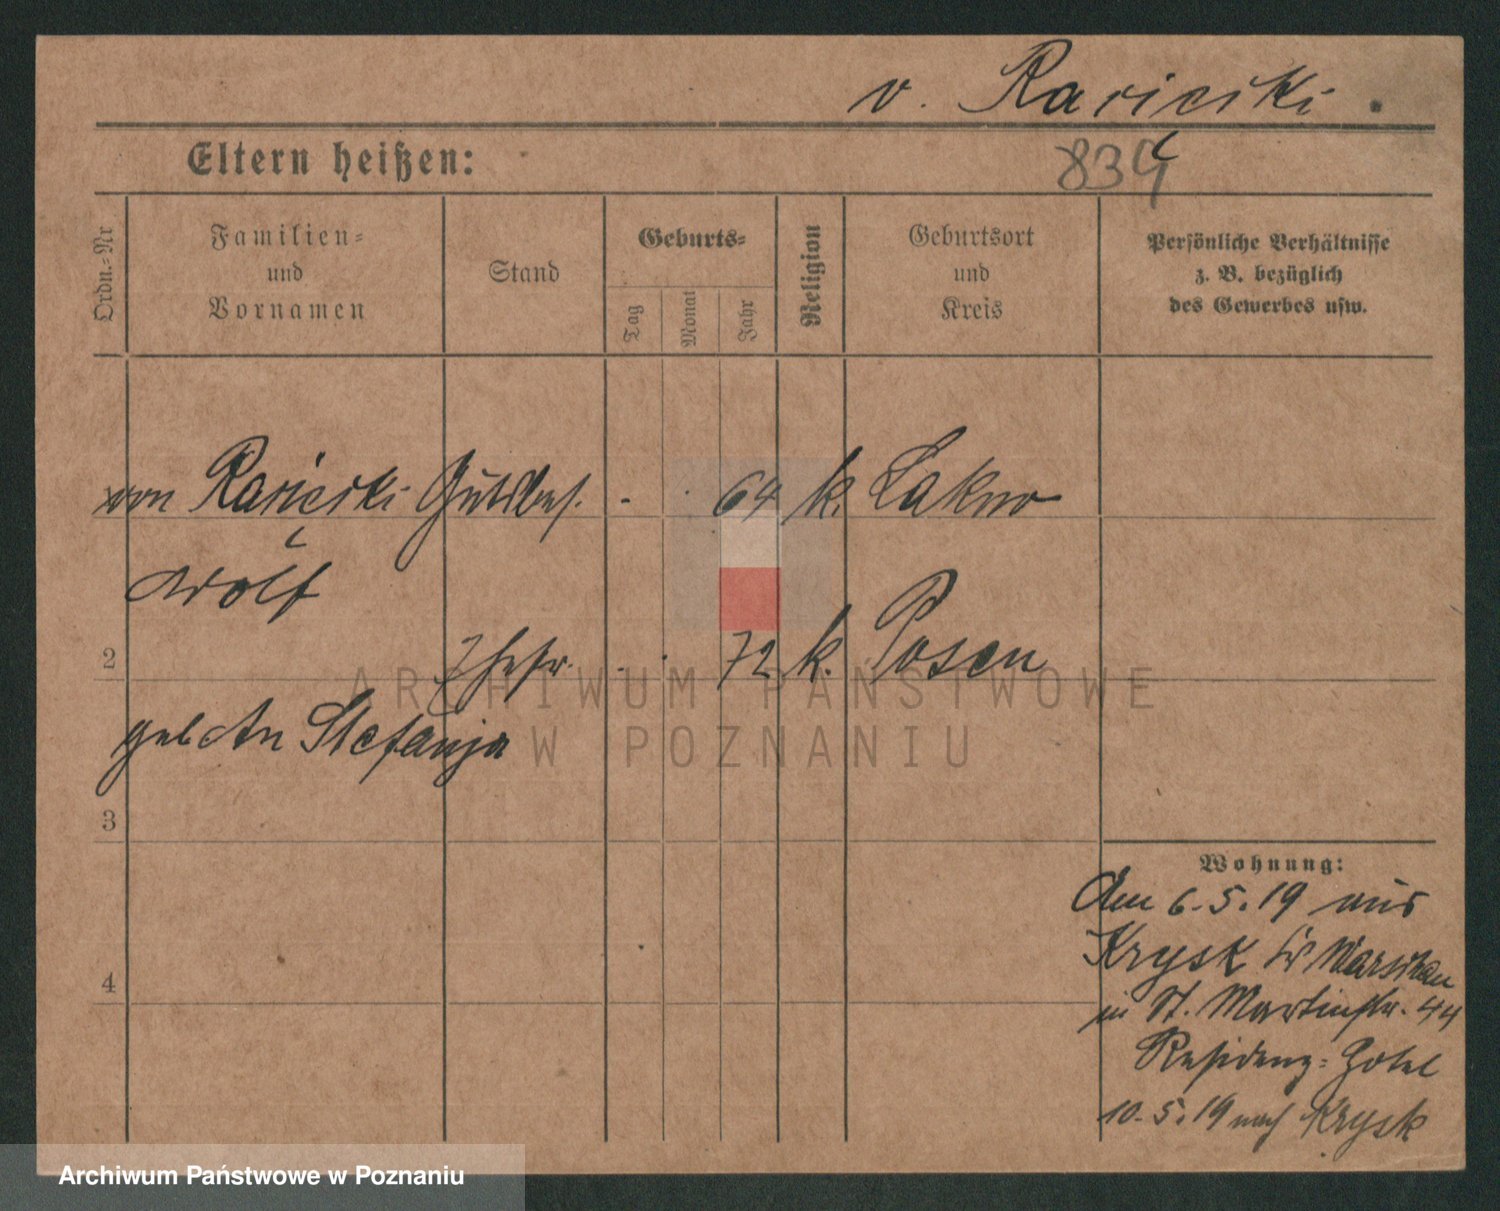 v. Raricski.
Eltern heißen:
839
Ordn.-Nr
Familien-
und
Vornamen
Stand
Geburts-
Tag
Monat
Jahr
Religion
Geburtsort
und
Kreis
Persönliche Verhältnisse
z. B. bezüglich
des Gewerbes usw.
von Raricski Gutsbes. - . 64 k. Lakno
Adolf
2 Ehefr. . . 72 k. Posen
geb. Stefanja
3
4
Wohnung:
Am 6.5.19 aus
Krysk Warschau
in St. Martinstr. 44
Residenz-Hotel
10.5.19 nach Krysk
ARCHIWUM PAŃSTWOWE
W POZNANIU
Archiwum Państwowe w Poznaniu